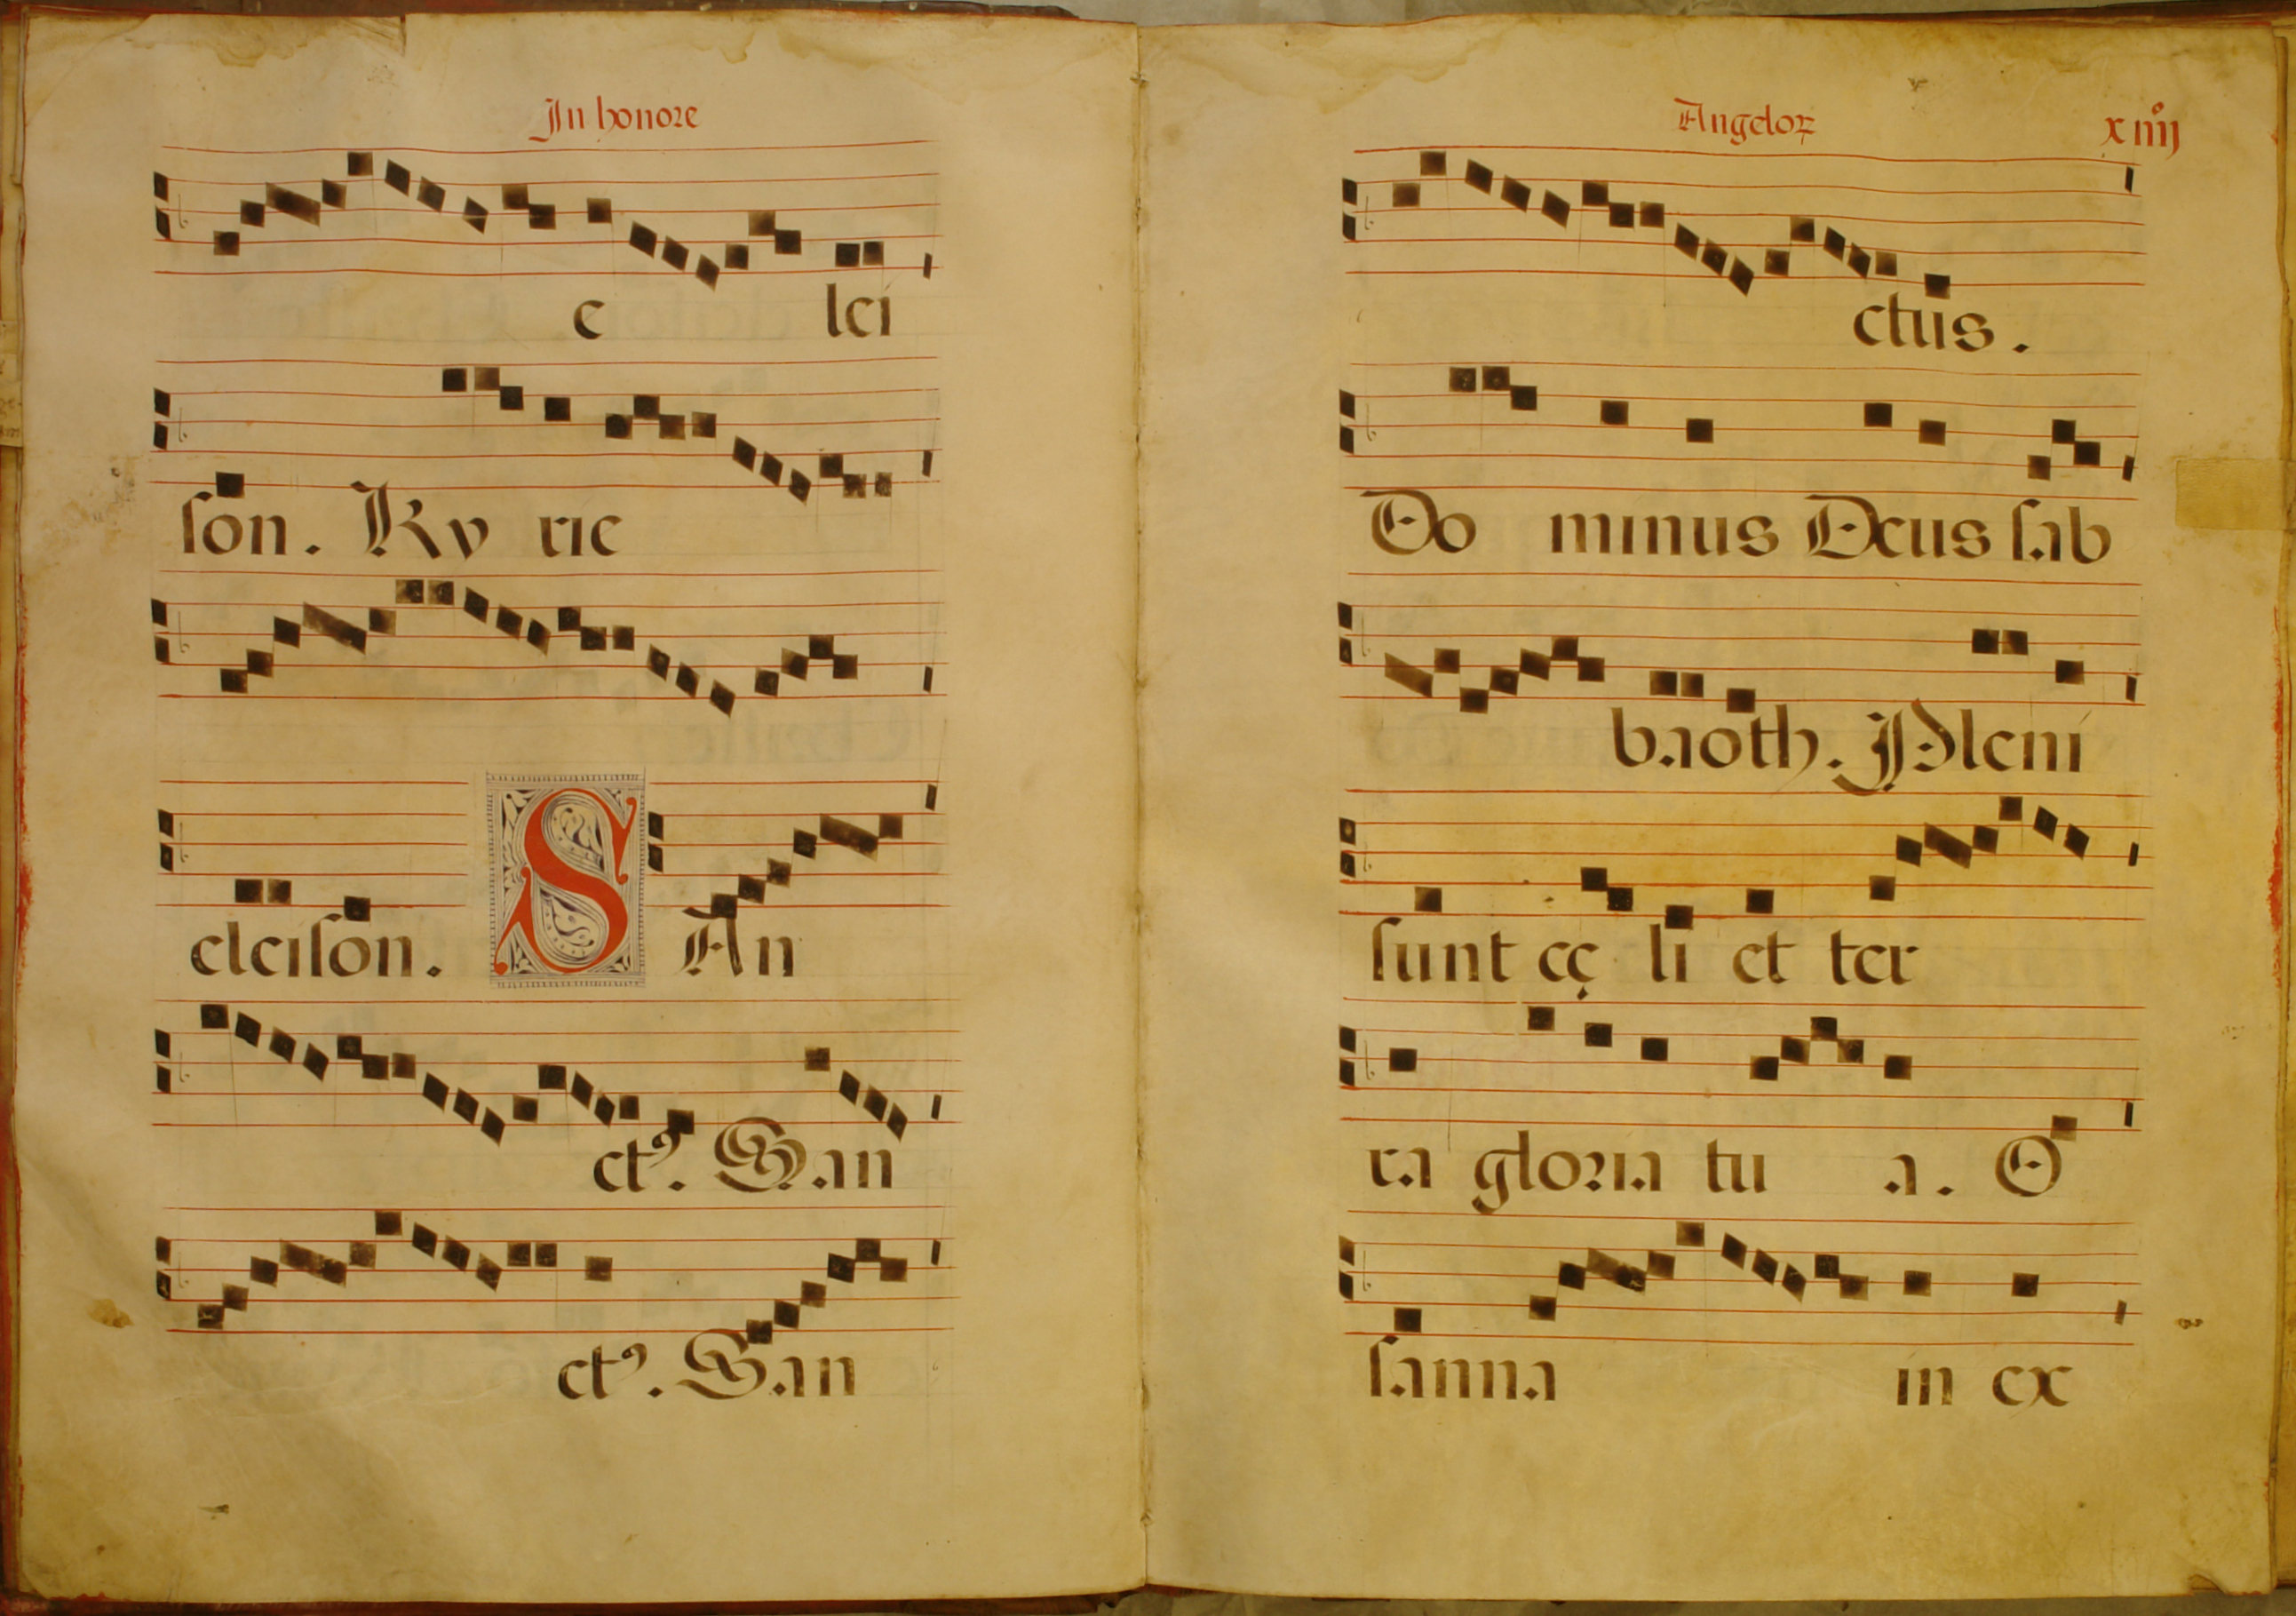 In honore
e lei
son. Ky rie
eleison. S An
ctꝰ. San
ctꝰ. San
Angeloꝝ xiiij
ctus.
Do minus Deus sab
baoth. Pleni
sunt cę li et ter
ra gloria tu a. O
sanna in ex